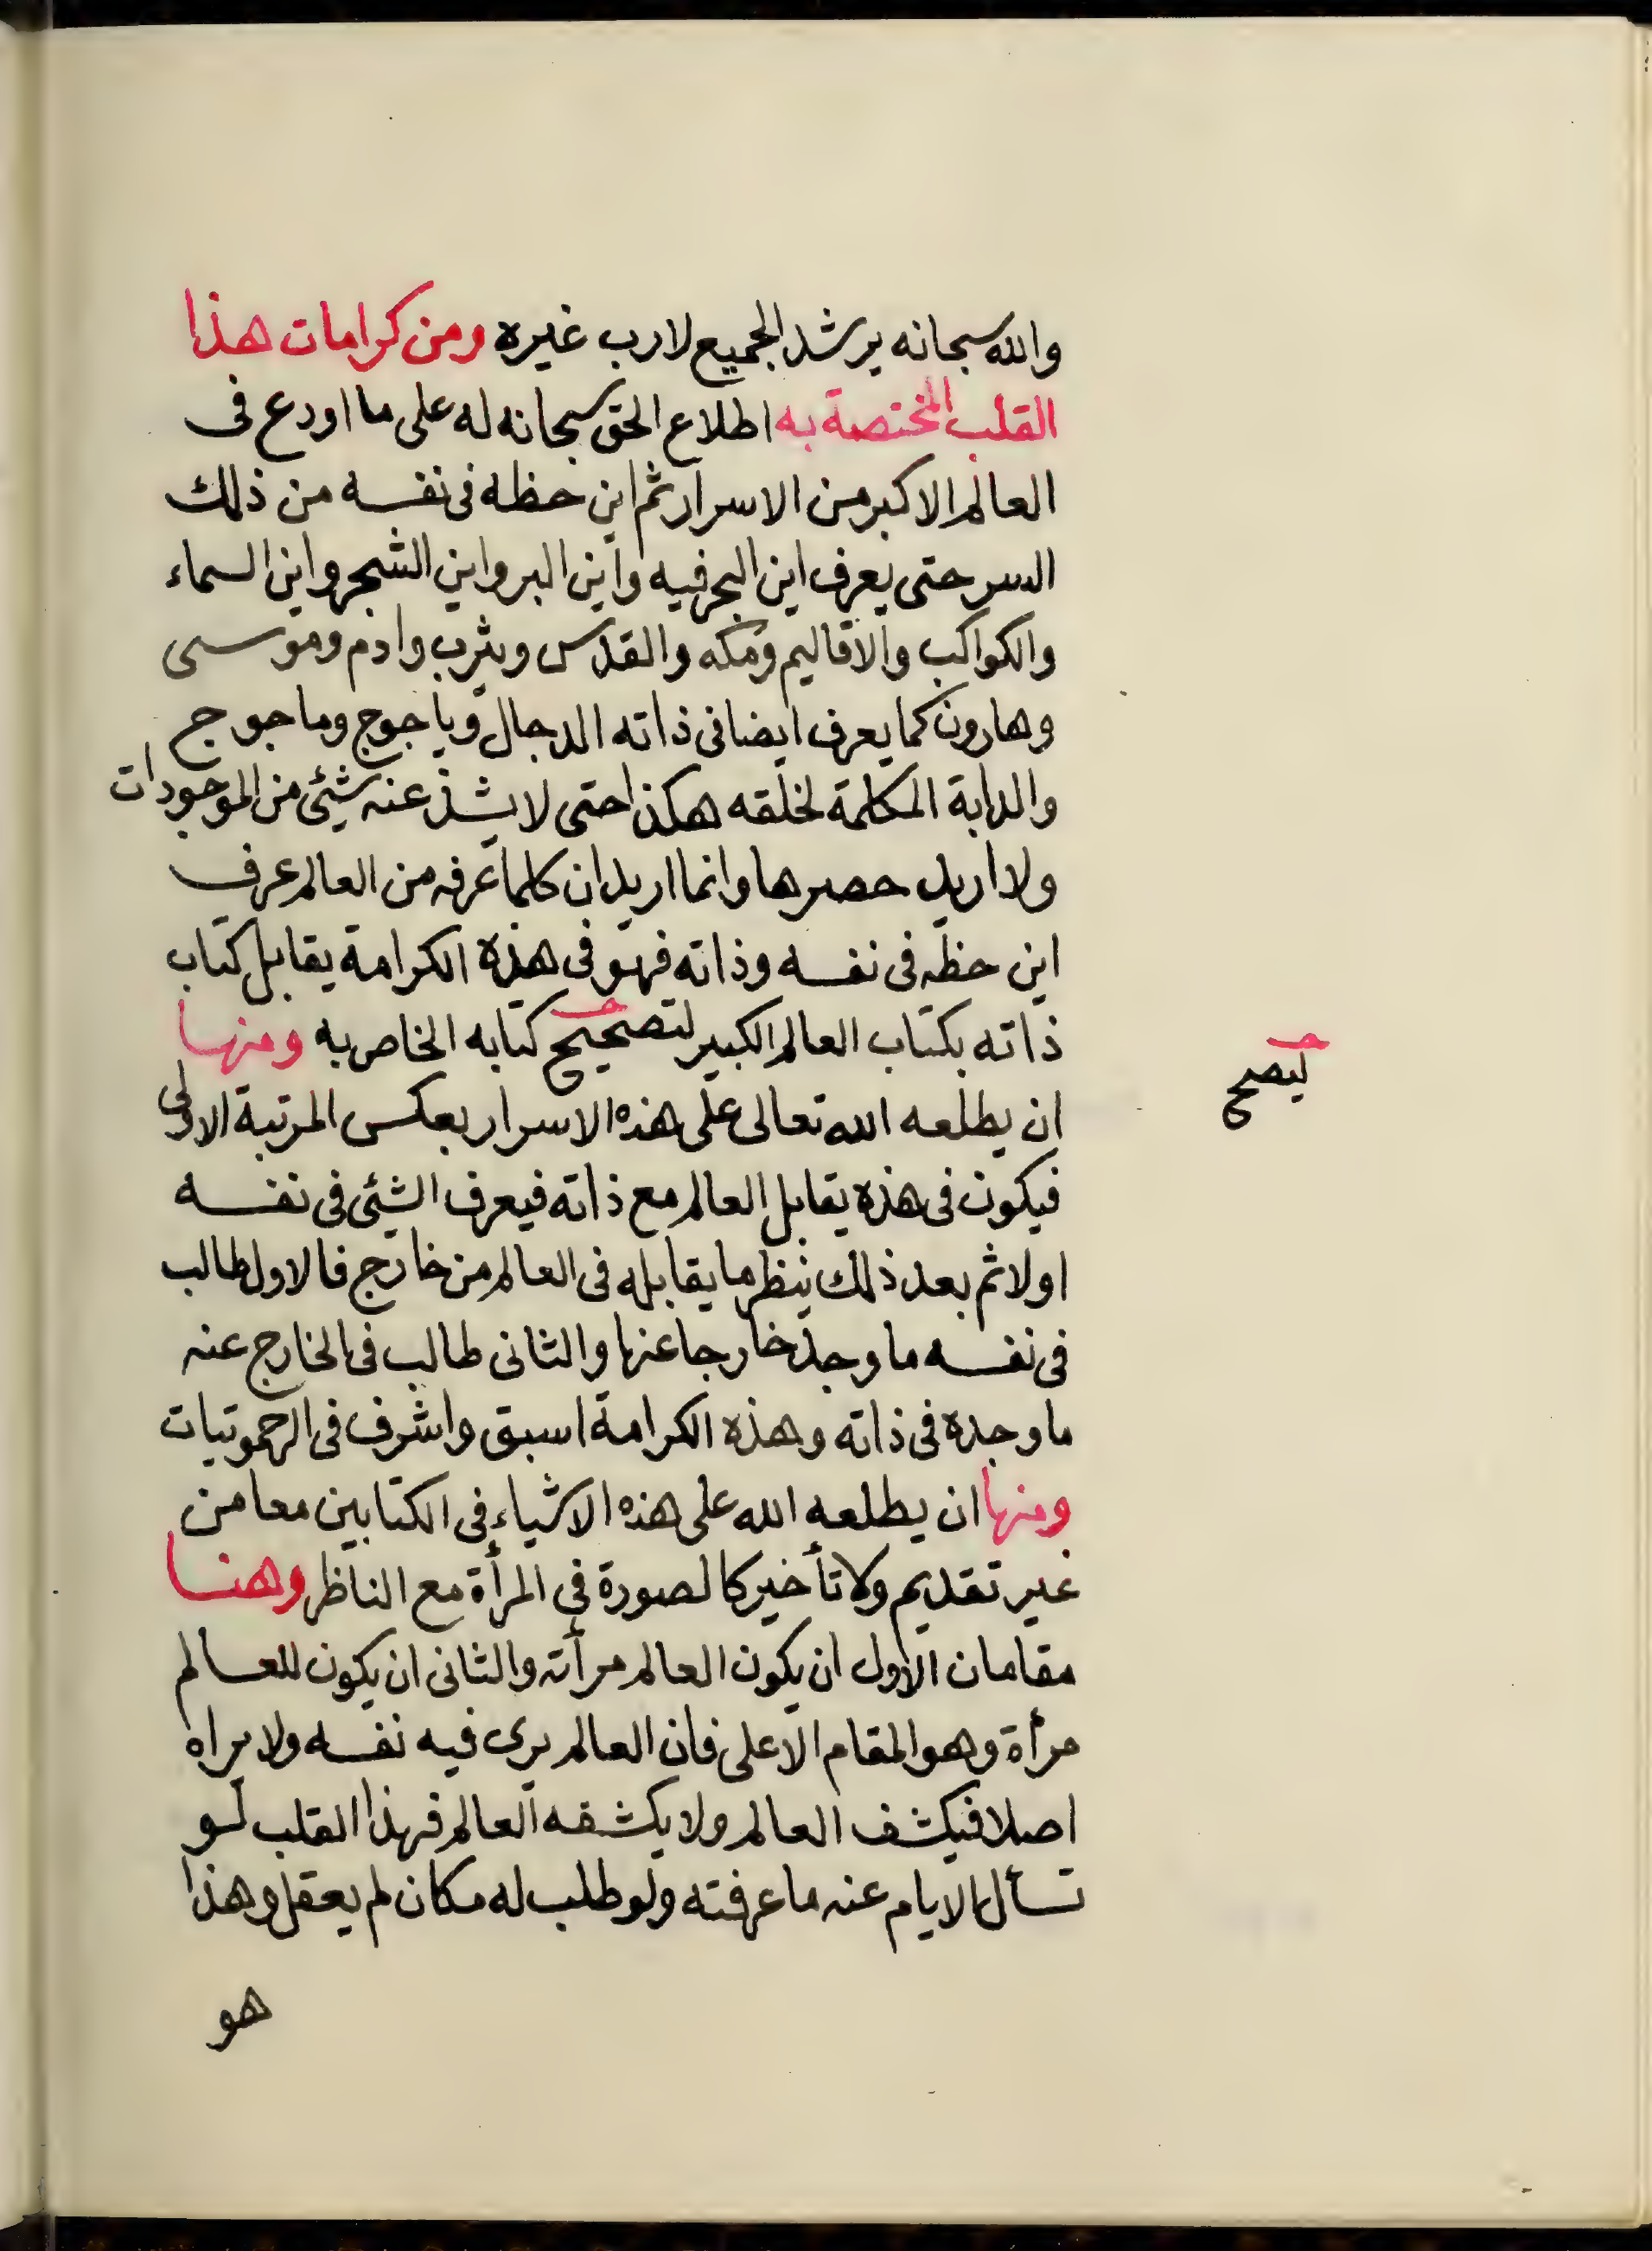 والله سبحانه يرشد الجميع لا رب غيره ومن كرامات هذا
القلب المختصة به اطلاع الحق سبحانه له على ما اودع فى
العالم الاكبر من الاسرار ثم اين حظه فى نفسه من ذلك
السر حتى يعرف اين البحر فيه واين البر واين الشجر واين السماء
والكواكب والاقاليم ومكه والقدس ويثرب وادم وموسى
وهارون كما يعرف ايضا فى ذاته الدجال وياجوج وماجوج
والدابة المكلمة لخلقه هكذا حتى لا يشذ عنه شيئ من الموجودات
ولا اريد حصرها وانما اريد ان كلما عرفه من العالم عرف
اين حظه فى نفسه وذاته فهو فى هذه الكرامة يقابل كتاب
ذاته بكتاب العالم الكبير لتصحيح كتابه الخاص به ومنها
ليصح
ان يطلعه الله تعالى على هذه الاسرار بعكس المرتبة الاولى
فيكون فى هذه يقابل العالم مع ذاته فيعرف الشيئ فى نفسه
اولا ثم بعد ذلك ينظر ما يقابله فى العالم من خارج فالاول طالب
فى نفسه ما وجد خارجا عنها والثانى طالب فى الخارج عنه
ما وجده فى ذاته وهذه الكرامة اسبق واشرف فى الرحموتيات
ومنها ان يطلعه الله على هذه الاشياء فى الكتابين معا من
غير تقديم ولا تأخير كالصورة في المرأة مع الناظر وهنا
مقامان الاول ان يكون العالم مرأته والثانى ان يكون للعالم
مرأة وهو المقام الاعلى فان العالم يرى فيه نفسه ولا يراه
اصلا فيكشف العالم ولا يكشفه العالم فهذا القلب لو
تسأل الايام عنه ما عرفته ولو طلب له مكان لم يعقل وهذا
هو